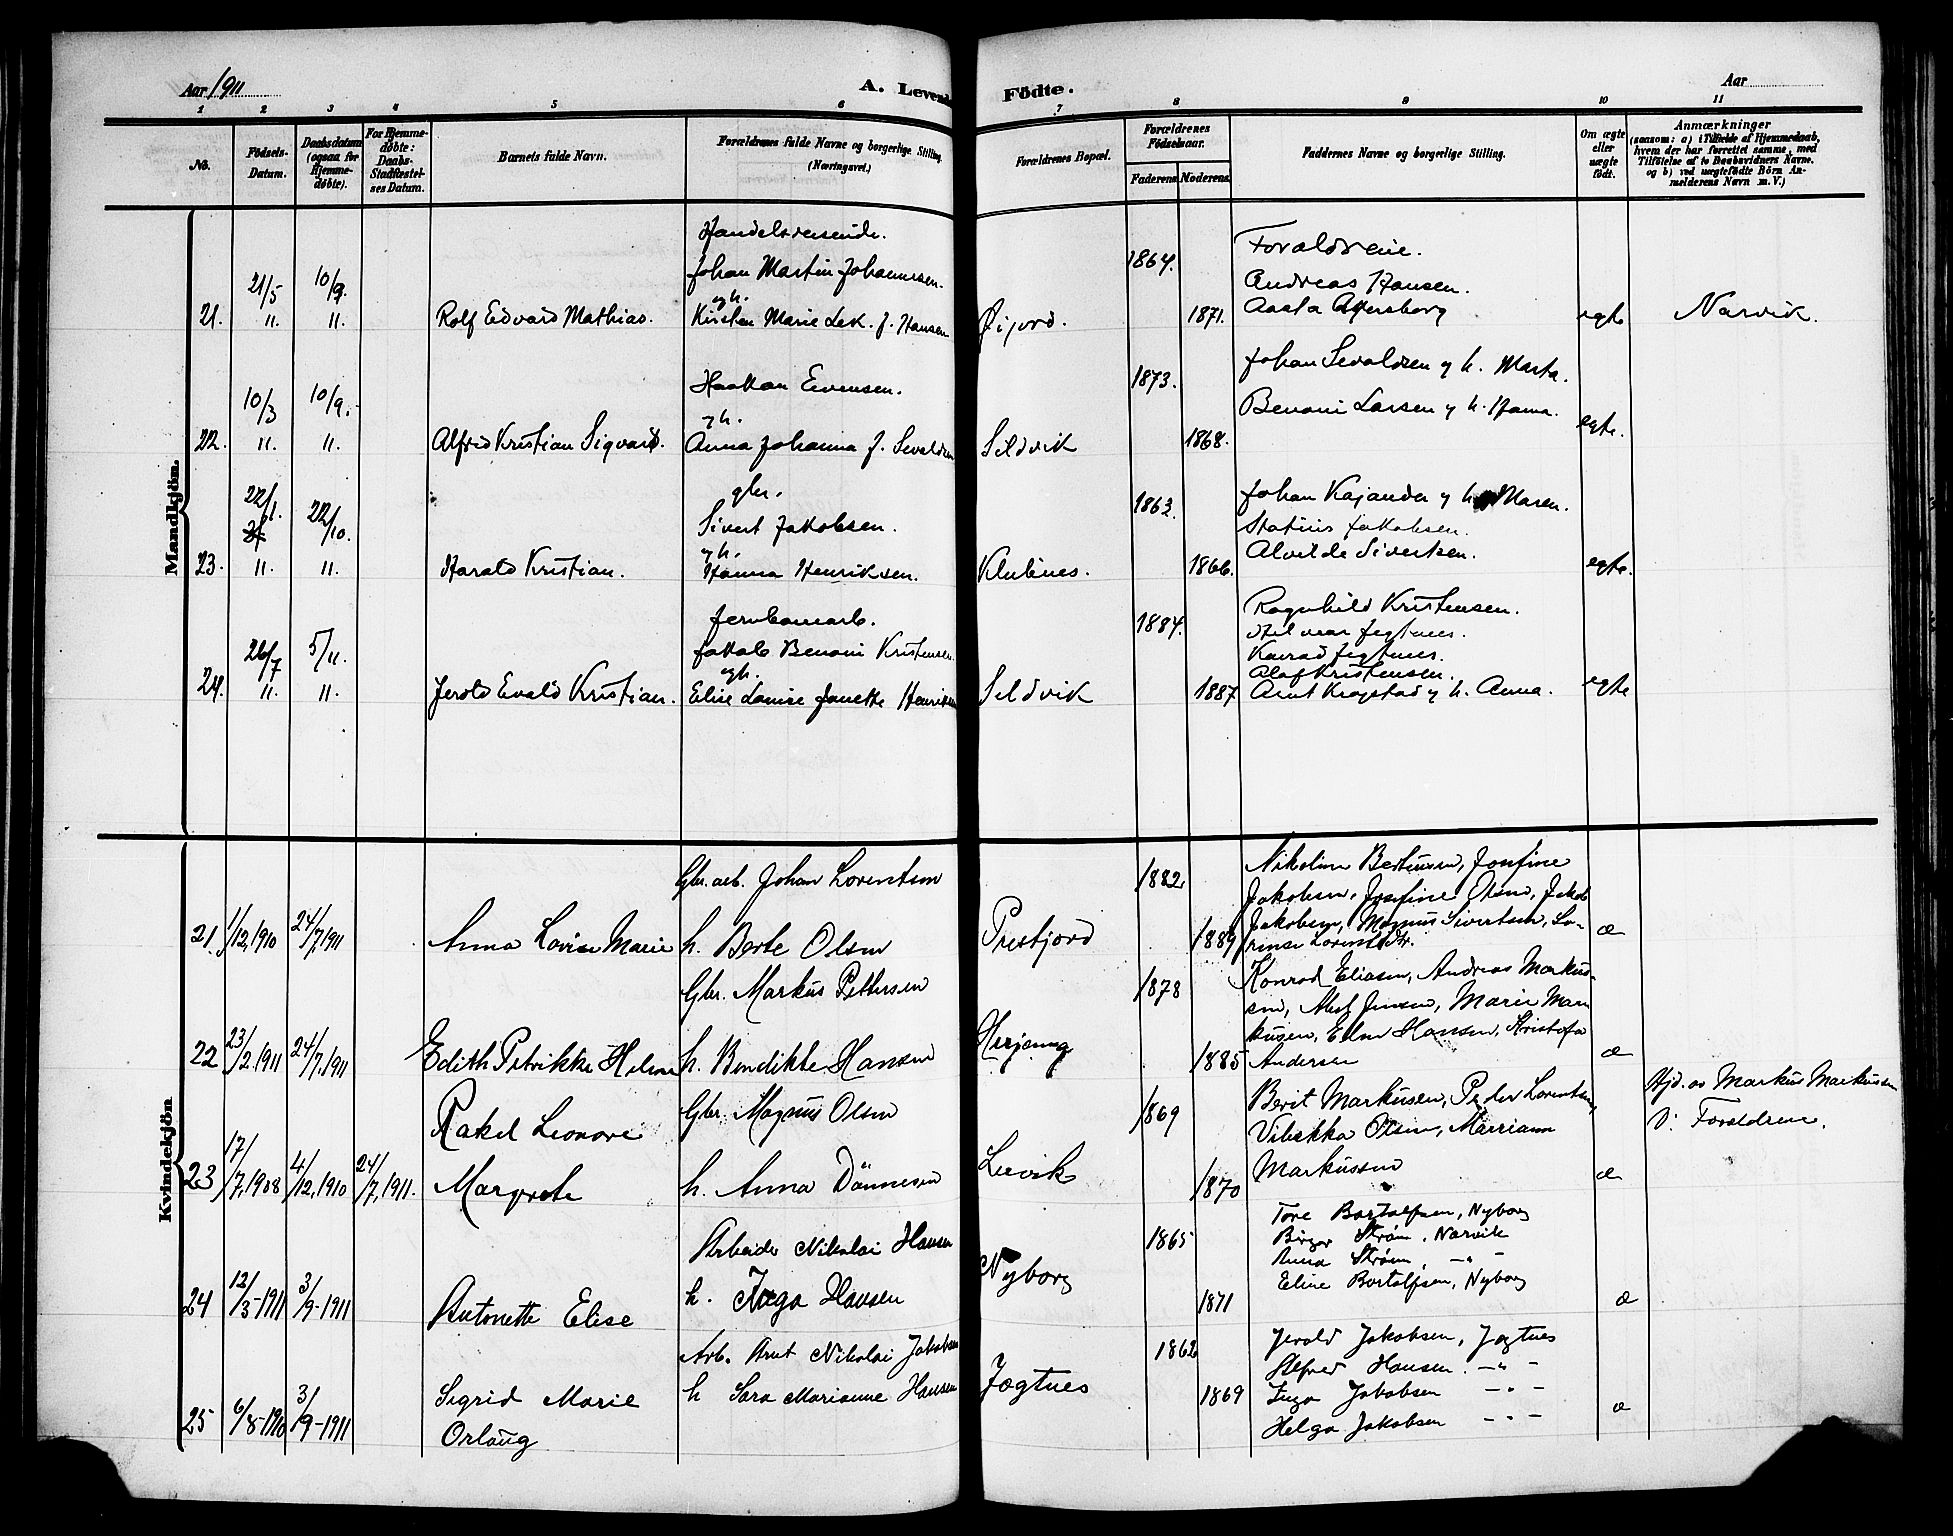 Aar 1911
A. Levende Födte.
Aar
1 2 3 4 5 6 7 8 9 10 11
No.
Födsels-Datum.
Daabsdatum (ogsaa for Hjemme-döbte).
For Hjemme-döbte: Daabs-Stadfæstel-ses Datum.
Barnets fulde Navn.
Forældrenes fulde Navne og borgerlige Stilling.
(Næringsvei.)
Forældrenes Bopæl.
Forældrenes Födselsaar.
Faderens. Moderens.
Faddernes Navne og borgerlige Stilling.
Om ægte eller uægte födt.
Anmærkninger
(saasom: a) i Tilfælde af Hjemmedaab,
hvem der har forrettet samme, med
Tilföielse af to Daabsvidners Navne.
og b) ved uægtefödte Börn An-
melderens Navn m. V.)
Mandkjön.
Handelsreisende.
Johan Martin Johannesen.
1864.
Forældrene.
Andreas Hansen.
21/5 10/9.
21. " " Rolf Edvard Mathias.
gh.
Kirsten Marie Lek. f. Hansen
Øijord. 1871.
Aasta
egte
Narvik.
Haakon Evensen.
1873.
Johan Sevaldsen g h. Marta.
10/3 10/9.
gh.
Benoni Larsen g h. Hanna.
22. " " Alfred Kristian Sigvard.
Anna Johanna f. Sevaldsen
Sildvik 1868.
egte.
gbr.
Sivert Jakobsen.
1863.
Johan Kajander g h. Maren.
Statius Jakobsen.
22/1. 22/10.
gh.
Alvilde Sivertsen.
23. " " Harald Kristian.
Hanna Henriksen.
Klubnes. 1866.
egte.
Jernbanearb.
Jakob Benoni Kristensen.
1884.
Ragnhild Kristensen.
Hilmar Jegtnes.
Konrad Jegtnes.
Olaf Kristensen.
26/7 5/11.
gh.
24. " " Jerold Evald Kristian.
Elise Lovise Janette Henriksen
Sildvik 1887
Arnt Krogstad g h. Anna.
egte
Kvindekjön
Gbr. arb. Johan Lorentsen
1882.
Nikoline Berthinsen, Josfine
Jakobsen, Josefine Olsen, Jakob
21. 1/12, 1910 24/7, 1911 Anna Lovise Marie
h. Berte Olsen
Prestjord 1889
Jakobsen, Magnus Sivertsen, Lo-
rinse Lorentsdtr.
æ
Gbr. Markus Pettersen
1878
Konrad Eliasen, Andreas Markus-
sen, Alest Jensen, Marie Mar
22 23/2, 1911 24/7, 1911 Edith Petrikke Helene
h. Bendikte Hansen
Herjang 1885
kusen, Elen Hansen, Kristofa
Andersen
æ
Rakel Leonore
Margrete
Gbr. Magnus Olsen
1869
Berit Markusen, Peder Lorentsen,
Vibekka Olsen, Marriann
Markussen
Hjd. av Markus Markussen
V: Forældrene.
23 17/7, 1908 4/12, 1910 24/7, 1911.
h. Anna Dönnesen
Leirvik 1870
æ
Arbeider Nikolai Hansen
1865
Tore Bortolfsen, Nyborg
Birger Strøm, Narvik
Anna Strøm, -"-
Eline Bortolfsen, Nyborg
24 12/3-1911 3/9-1911 Antonette Elise
h. Inga Hansen
Nyborg 1871
æ
Arb. Arnt Nikolai Jakobsen
1862
Jerold Jakobsen, Jægtnes
Alfred Hansen. -"-
Inga Jakobsen -"-
Helga Jakobsen -"-
25 6/8-1910 3/9-1911 Sigrid Marie
Orlaug
h Sara Marianne Hansen
Jægtnes 1869
æ